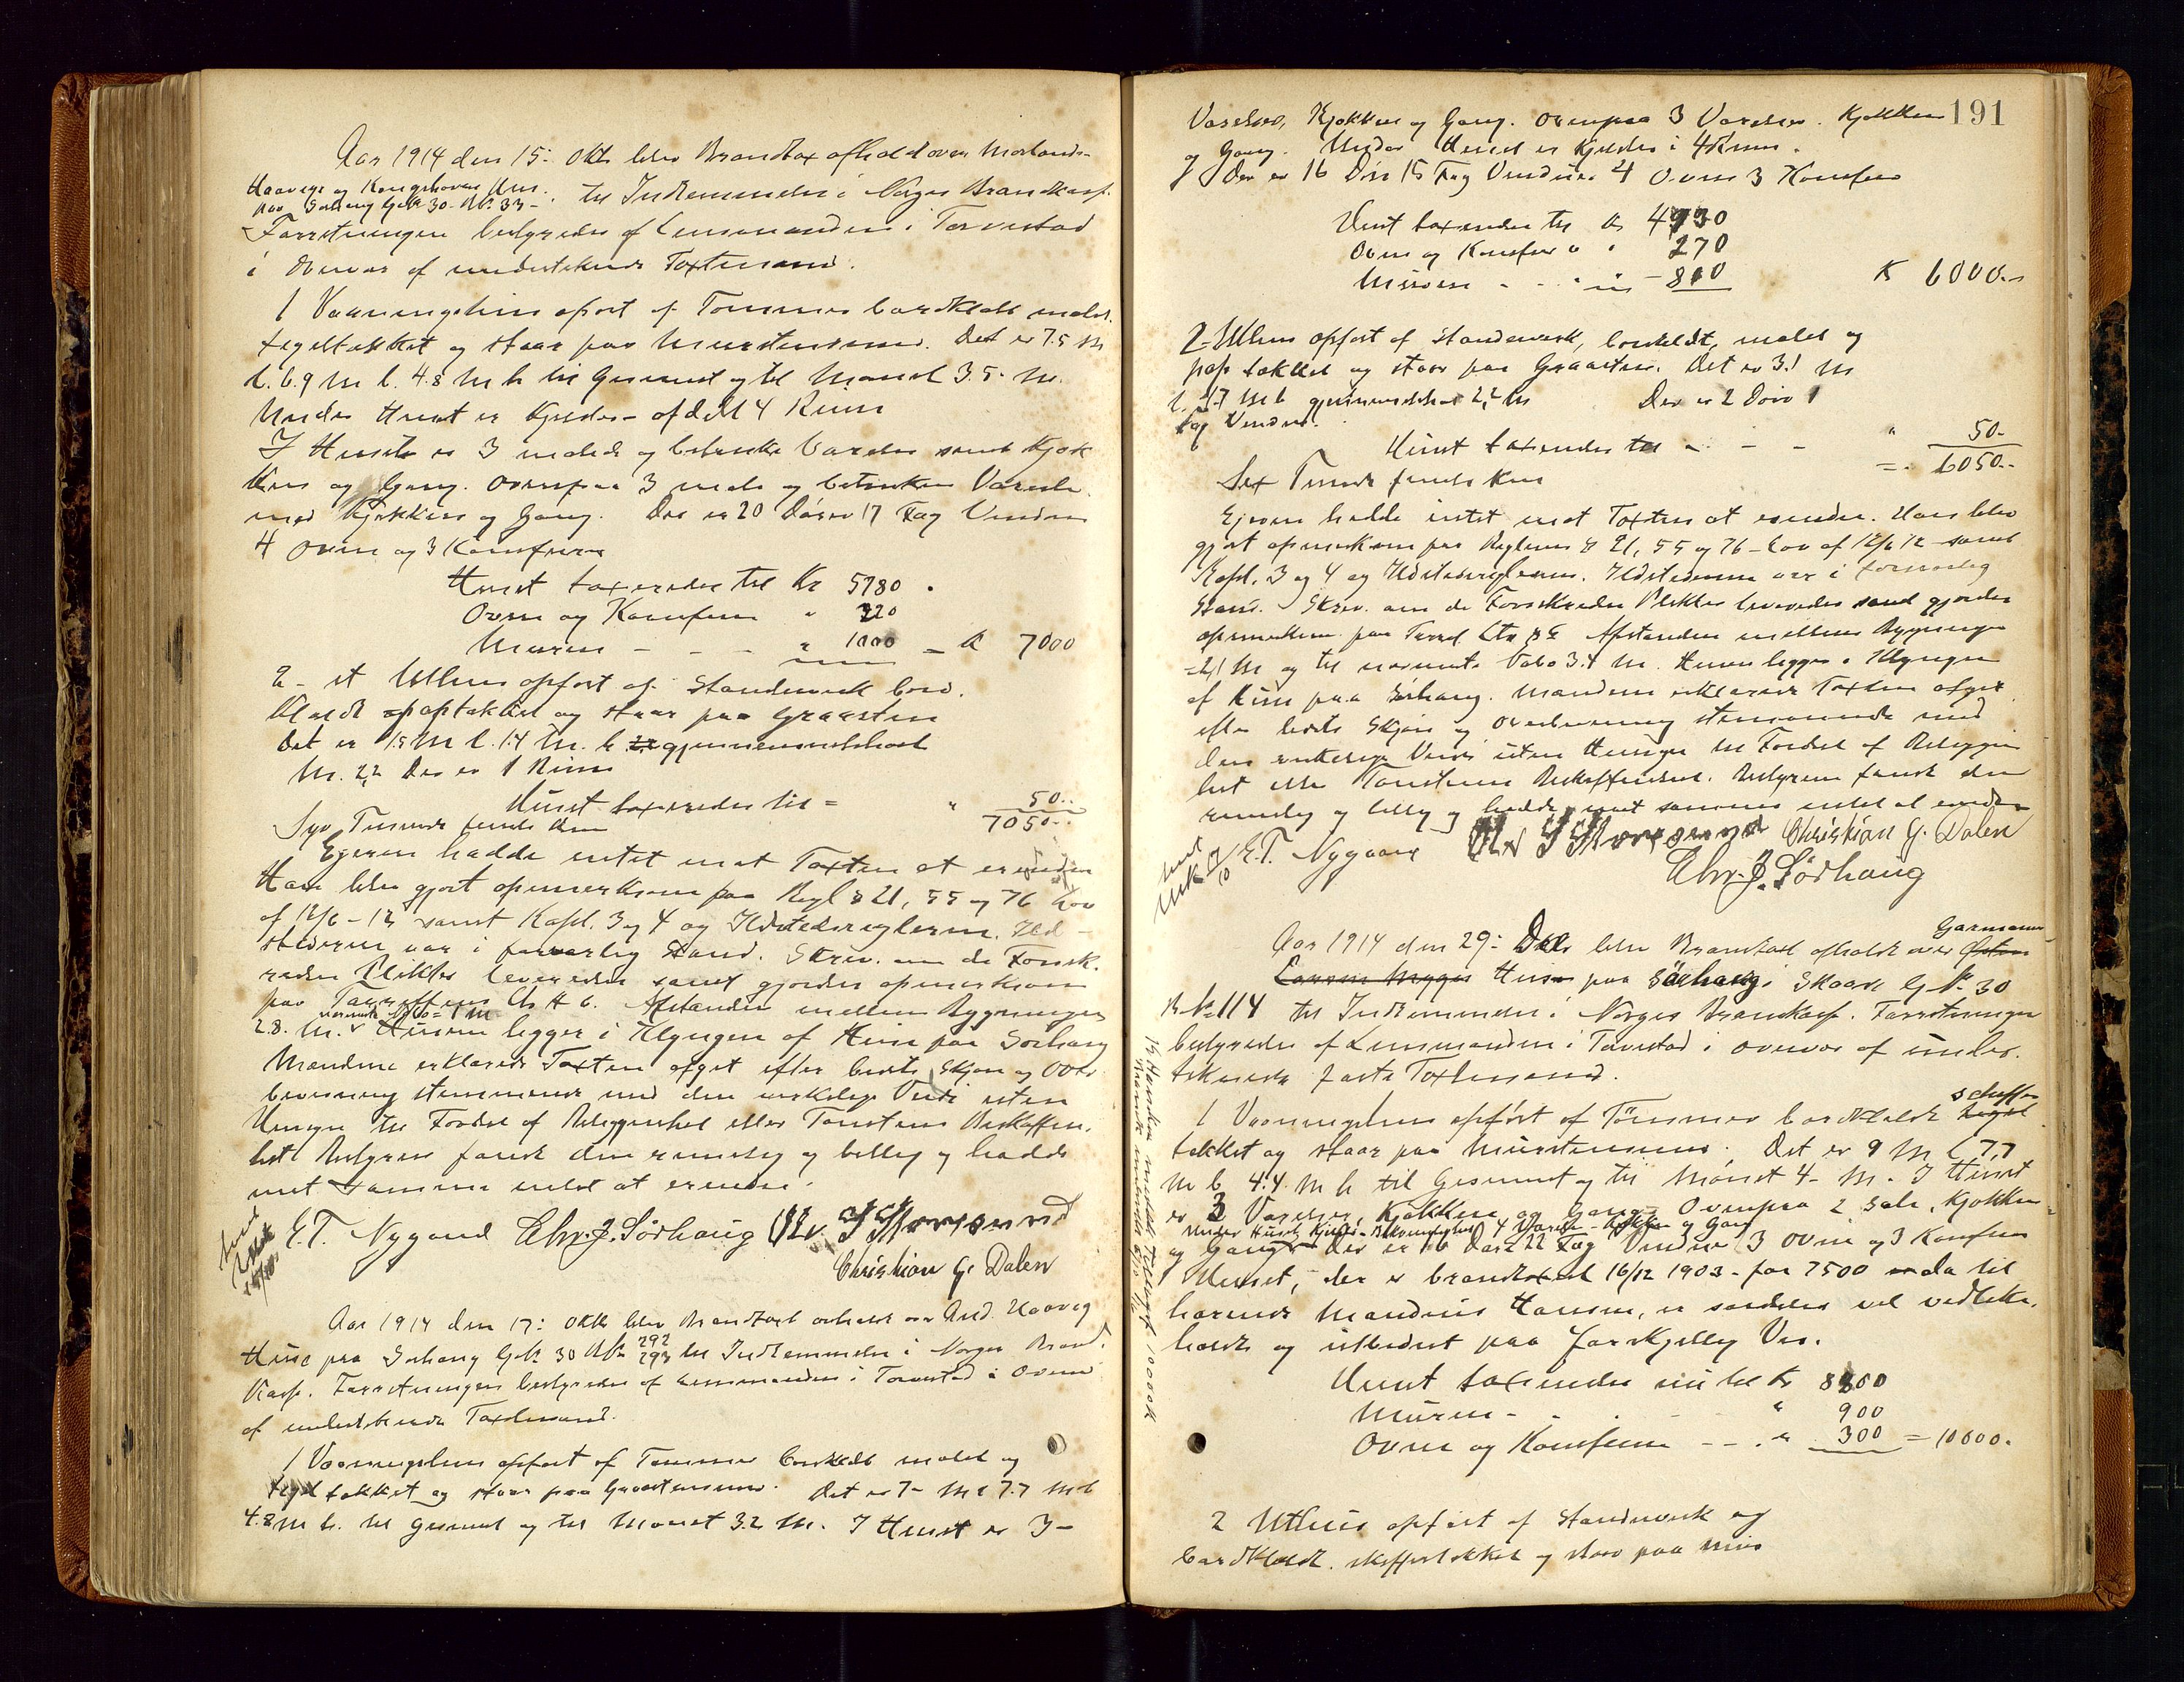 Aar 1914 den 15: Okt blev Brandtaxt afholdt over Morlands-
Haavigs og Kongshavns Hus. til Indlemmelse i Norges Brandkasse.
paa Sørhaug G.Nr 30 - B.Nr 33 -
Forretningen bestyredes af Lensmanden i Torvestad
i Overvær af undertegnede Taxtmænd.
1 Vaaningshus opført af Tømmer bordklædt malet
tegltækket og staar paa Murstensmur. Det er 7.5 M
l. 6.9 M b. 4.8 M h til Gesimset og til Mønset 3.5. M.
Under Huset er Kjelder - afdelt 4 Rum
I Huset er 3 malede og betrukne Værelser samt Kjøk
ken og Gang. Ovenpaa 3 malede og betrukne Værelser
med Kjøkken og Gang. Der er 20 Døre 17 Fag Vinduer
4 Ovne og 3 Komfurer
Huset taxeredes til Kr 5780.
Ovne og Komfurer " 220
Muren - - - " 1000 = K 7000
2 - et Uthus opført af Standværk bord.
klædt paptækket og staar paa Graasten
Det er 1.5 M l. 1.4 M. b. gjennemsnitshøide
M. 2.2 Der er 1 Rum
Huset taxeredes til = " 50..
Syv Tusinde femti Kr 7050..
Ejeren hadde intet mot Taxten at erindre
Han blev gjort opmerksom paa Regl § 21, 55 og 76 Lov
af 12/6 - 12 samt Kapl. 3 og 4 og Ildstedsreglerne. Ild-
stederne var i forsvarlig Stand. Skriv. om de Forsik.
redes Plikter leveredes samt gjordes opmerksom
paa Tarriffens Litt 6. Afstanden mellem Bygninger
2.8. M. nærmeste Nabo = 1 M Husene ligger i Klyngen af Huse paa Sørhaug
Mændene erklærede Taxten afgit efter bedste Skjøn og Over
bevisning stemmende med den virkelige Værdi uten
Hensyn til Fordel af Beliggenhet eller Tomtens Beskaffen.
het Bestyreren fandt den rimelig og billig og hadde
mot samme intet at erindre.
E. T. Nygaard Chr. J. Sørhaug Ole S Storesund
Christian G. Dalen
Aar 1914 den 17: Okt blev Brandtaxt avholdt over And. Haavig
Huse paa Sørhaug G.Nr 30 B.Nr 292 293 til Indlemmelse i Norges Brand.
kasse. Forretningen bestyredes af Lensmanden i Torvestad i Overvær
af undertegnede Taxtmænd.
1 Vaaningshus opført af Tømmer bordklædt malet og
tegltækket og staar paa Graastensmur. Det er 7- M l 7.7 M b
4.8 M h. til Gesimset og til Mønset 3.2 M. I Huset er 3-
191
Værelser, Kjøkken og Gang. Ovenpaa 3 Værelser. Kjøkken
og Gang. Under Huset er Kjelder i 4 Rum.
Der er 16 Døre 15 Fag Vinduer 4 Ovne 3 Komfurer
Huset taxeredes til Kr 4930
Ovne og Komfurer " " 270
Murene - - - " - 800 K 6000..
2 - Uthus opført af Standværk, bordklædt, malet og
paptækket og staar paa Graasten. Det er 3.1 M
l. 1.7 M b gjennemsnitshøide 2.2 M Der er 2 Døre 1
Fag Vinduer.
Huset taxeredes til - - - " 50-
Sex Tusinde femti Kroner =. 6050..
Ejeren hadde intet mot Taxten at erindre. Han blev
gjort opmerksom paa Reglerne § 21, 55 og 76 - Lov af 12/6 12 samt
Kapl. 3 og 4 og Ildstedsreglerne. Ildstederne var i forsvarlig
Stand. Skriv. om de Forsikredes Plikter leveredes samt gjordes
opmerksom paa Afstanden mellem Bygninger
= 2.1 M og til nærmeste Nabo 3.4 M. Husene ligger i Klyngen
af Huse paa Sørhaug. Mændene erklærede Taxten afgit
efter bedste Skjøn og Overbevisning stemmende med
den virkelige Værdi uten Hensyn til Fordel af Beliggen
het eller Tomtens Beskaffenhet. Bestyreren fandt den
rimelig og billig og hadde mot samme intet at erindre
E. T. Nygaard Ole S Storesund Christian G. Dalen
Chr. J. Sørhaug
Aar 1914 den 29: Okt blev Brandtaxt afholdt over Garmanns
Huse paa Sørhaug i Skaare G.Nr. 30
B.Nr 114 til Indlemmelse i Norges Brandkasse. Forretningen
bestyredes af Lensmanden i Torvestad i overvær af under-
tegnede faste Taxtmænd.
1 Vaaningshus opført af Tømmer bordklædt skiffer
tækket og staar paa Murstensmur. Det er 9 M l 7.7
M b 4.4 M h til Gesimset og til Mønset 4- M. I Huset
er 3 Værelser, Kjøkken og Gang. Ovenpaa 2 Sale, Kjøkken
Under Huset Kjelder - Bekvemmelighet 4 Værelser - Kjøkken og Gang
og Gang Der er 16 Døre 22 Fag Vinduer 3 Ovne og 3 Komfurer
Huset, der er brandtaxeret 16/12 1903 - for 7500 da til
hørende Mandius Hansen, er særdeles vel vedlike.
holdt og utbedret paa forskjellig Vis.
Huset taxeredes nu til Kr 8800
Muren - - - " 900
Ovne og Komfurer - - . " 300 = 10000.
2 Uthus opført af Standværk og
bordklædt. skiffertækket og staar paa Mur